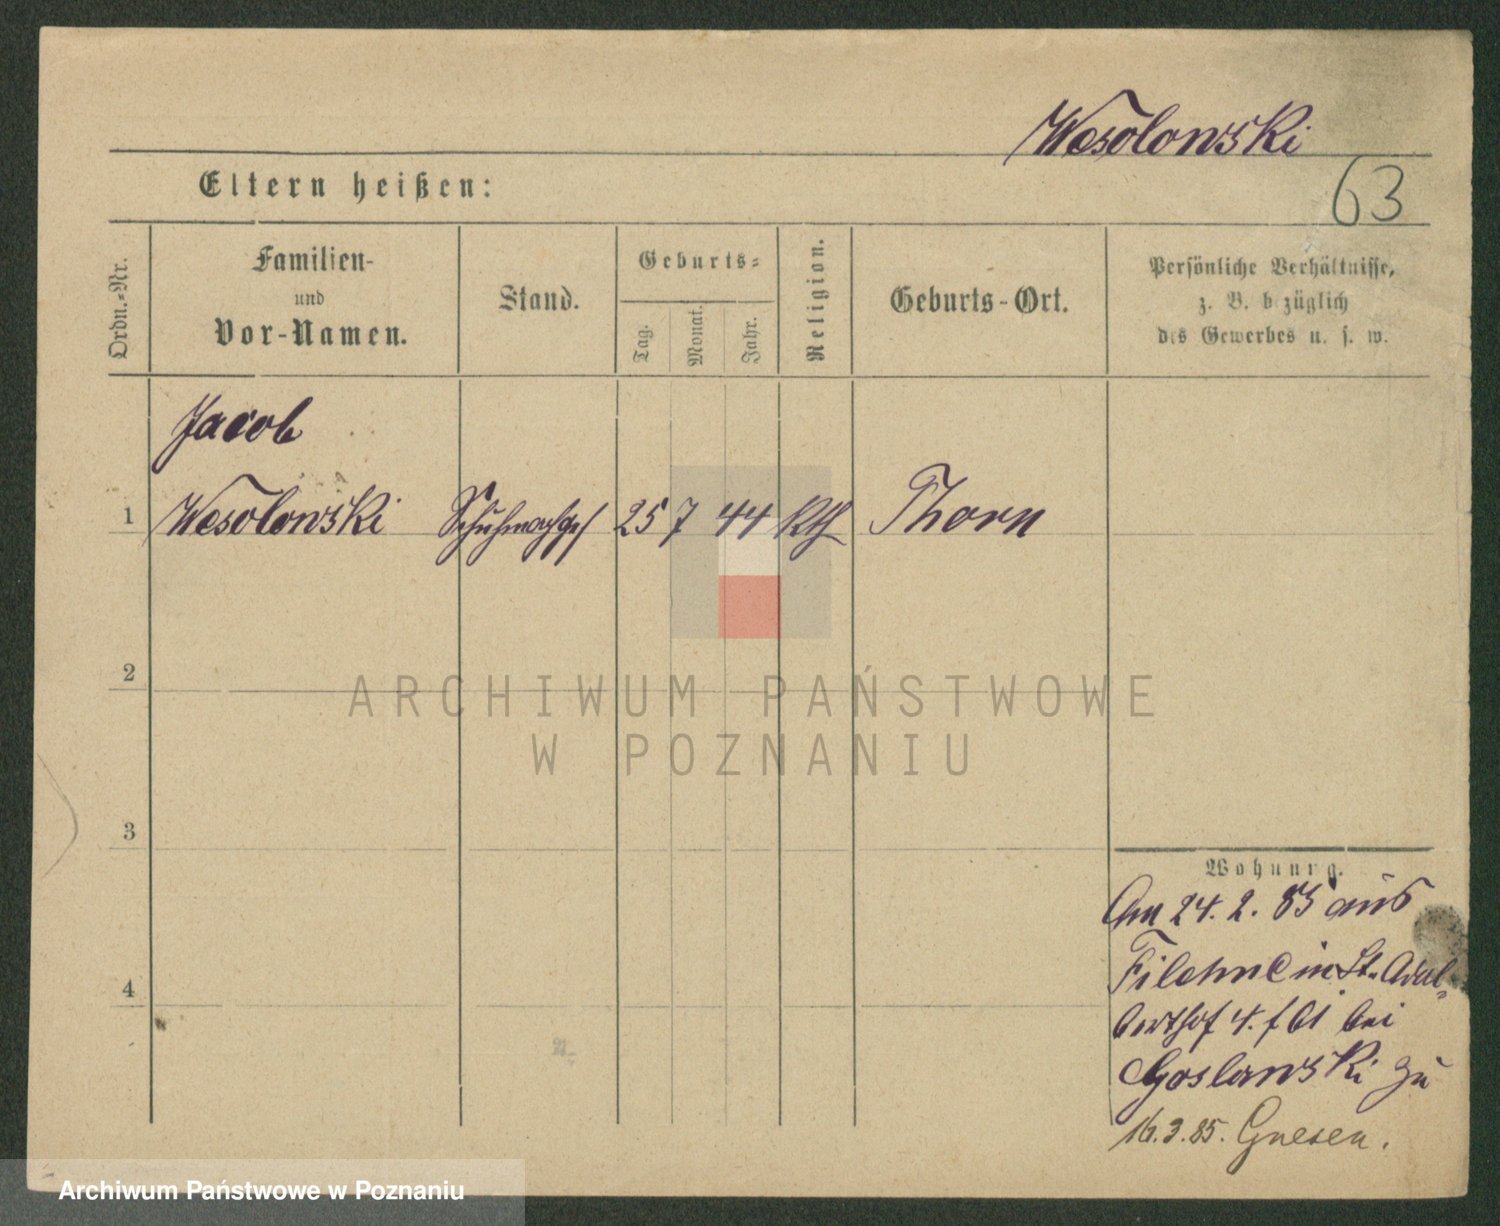 Wesolowski
Eltern heißen:
63
Ordn.-Nr.
Familien-
und
Vor-Namen.
Stand.
Geburts-
Tag.
Monat.
Jahr.
Religion.
Geburts-Ort.
Persönliche Verhältnisse,
z. B. bezüglich
des Gewerbes u. s. w.
Jacob
1 Wesolowski Schuhmachges 25 7 44 Kth Thorn
2
ARCHIWUM PAŃSTWOWE
W POZNANIU
3
Wohnung.
Am 24. 2. 85 aus
Filehne in St. Adal-
berthof 4. bei
Goslawski zu
4
16.3.85. Gnesen.
Archiwum Państwowe w Poznaniu